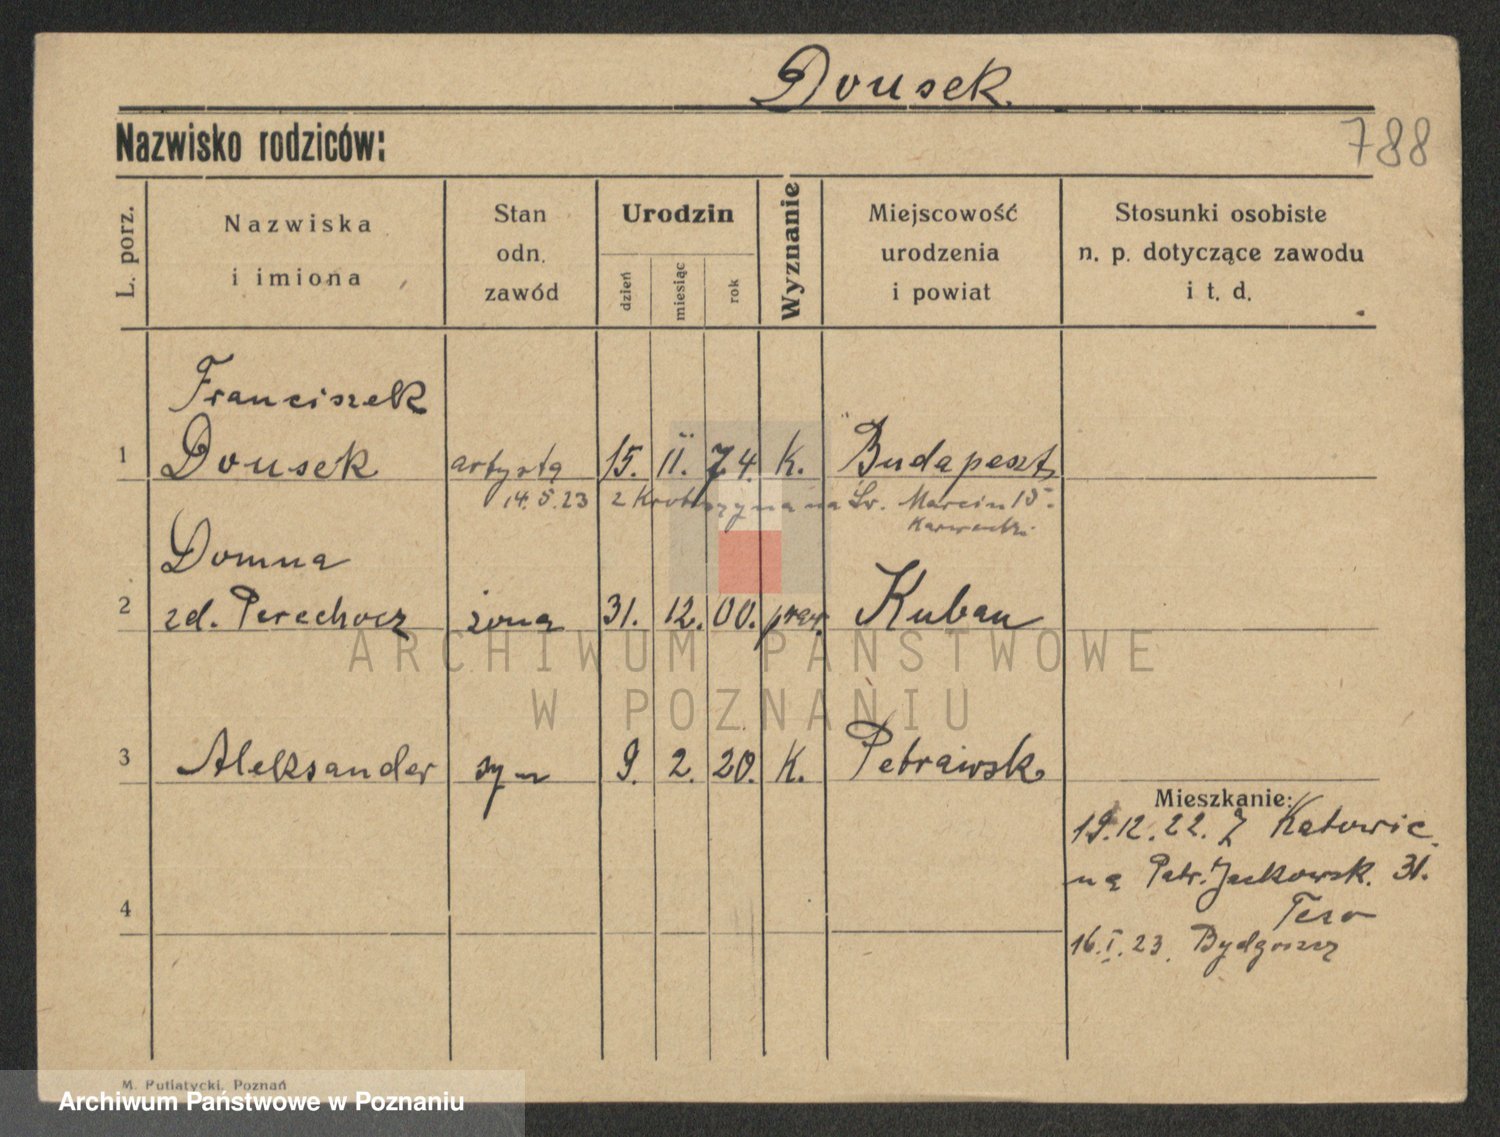 Dousek.
Nazwisko rodziców:
788
L. porz.
Nazwiska
i imiona
Stan
odn.
zawód
Urodzin
dzień
miesiąc
rok
Wyznanie
Miejscowość
urodzenia
i powiat
Stosunki osobiste
n. p. dotyczące zawodu
i t. d.
Franciszek
1 Dousek artysta 15. 11. 74. K. Budapeszt
14.5.23 z Krotoszyna na Św. Marcin 15.
Domna
2 zd. Perechocz żona 31. 12. 00. praw. Kuban
ARCHIWUM PAŃSTWOWE
W POZNANIU
3 Aleksander syn 9. 2. 20. K. Petrawsk
Mieszkanie:
19.12.22. Z Katowic
na Patr. Jackowsk. 31.
4
16.I.23. Bydgoszcz
M. Putiatycki, Poznań
Archiwum Państwowe w Poznaniu